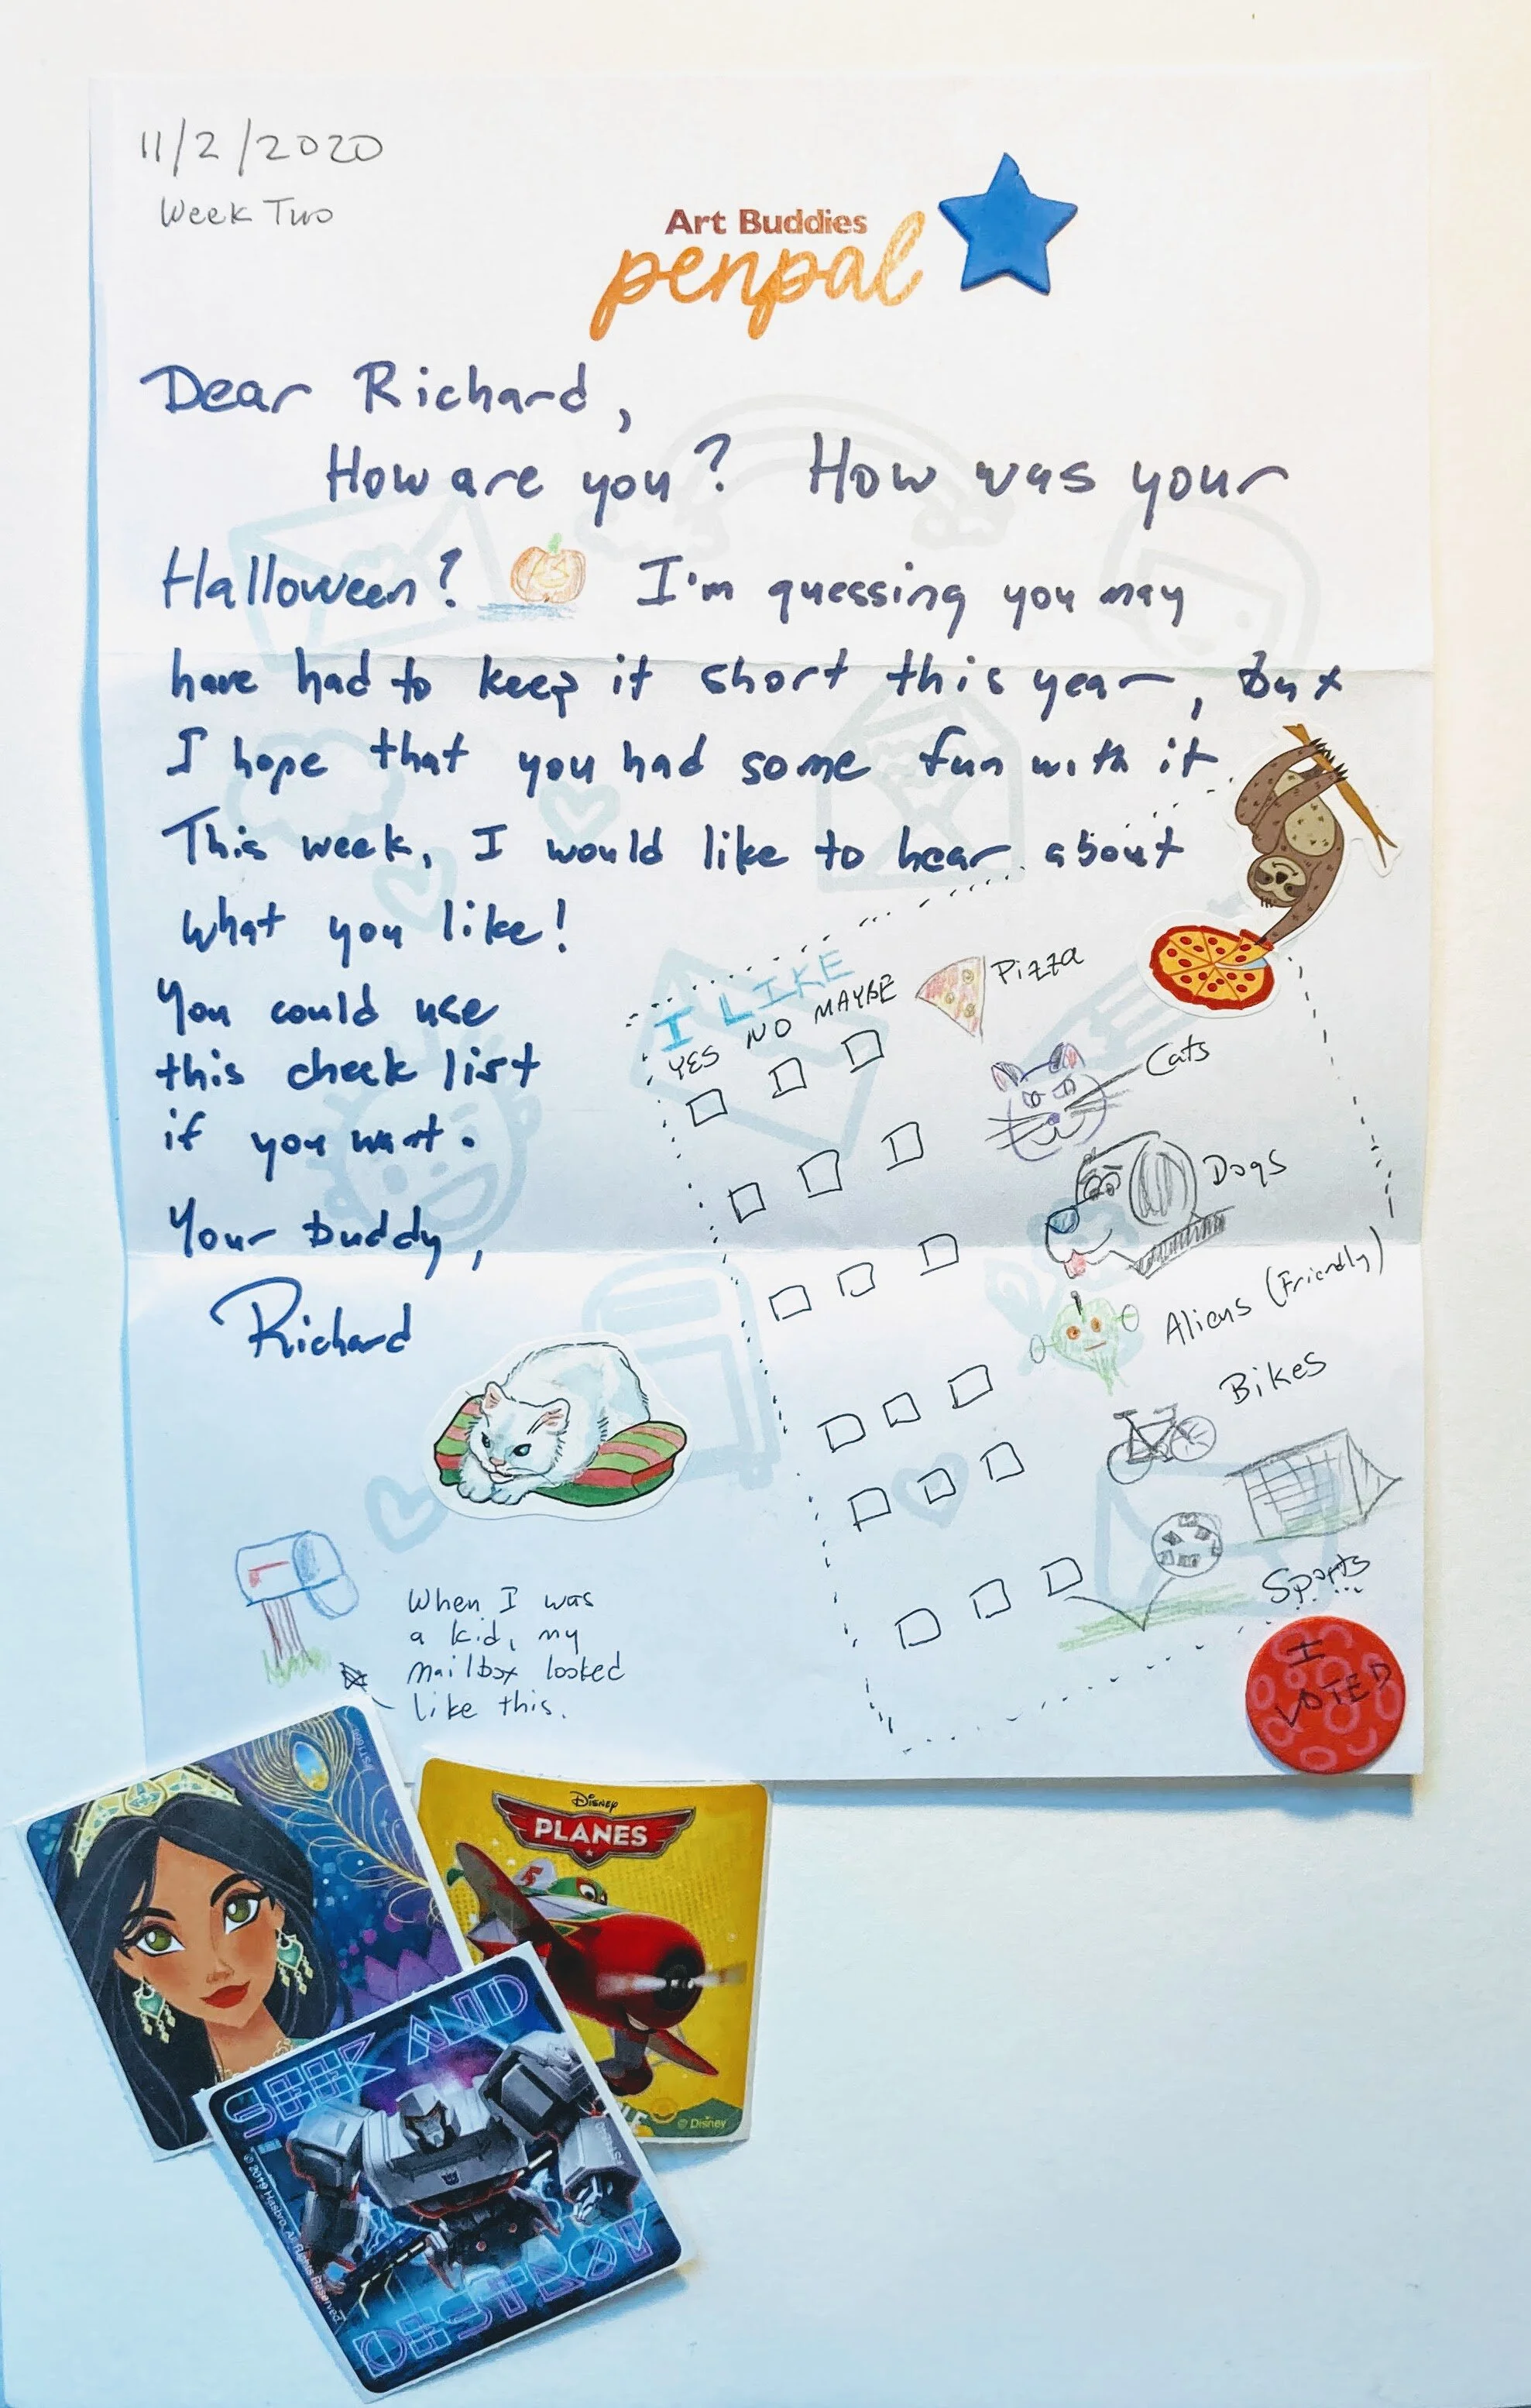 11/2/2020
Week Two
Art Buddies
penpal
Dear Richard,
How are you? How was your
Halloween? I'm guessing you may
have had to keep it short this year, but
I hope that you had some fun with it.
This week, I would like to hear about
what you like!
You could use
this check list
if you want.
Your Buddy,
Richard
I LIKE
YES NO MAYBE
Pizza
Cats
Dogs
Aliens (Friendly)
Bikes
Sports
I
VOTED
When I was
a kid, my
mailbox looked
like this.
DISNEY
PLANES
© Disney
SEEK AND
DESTROY
© 2019 Hasbro. All Rights Reserved.